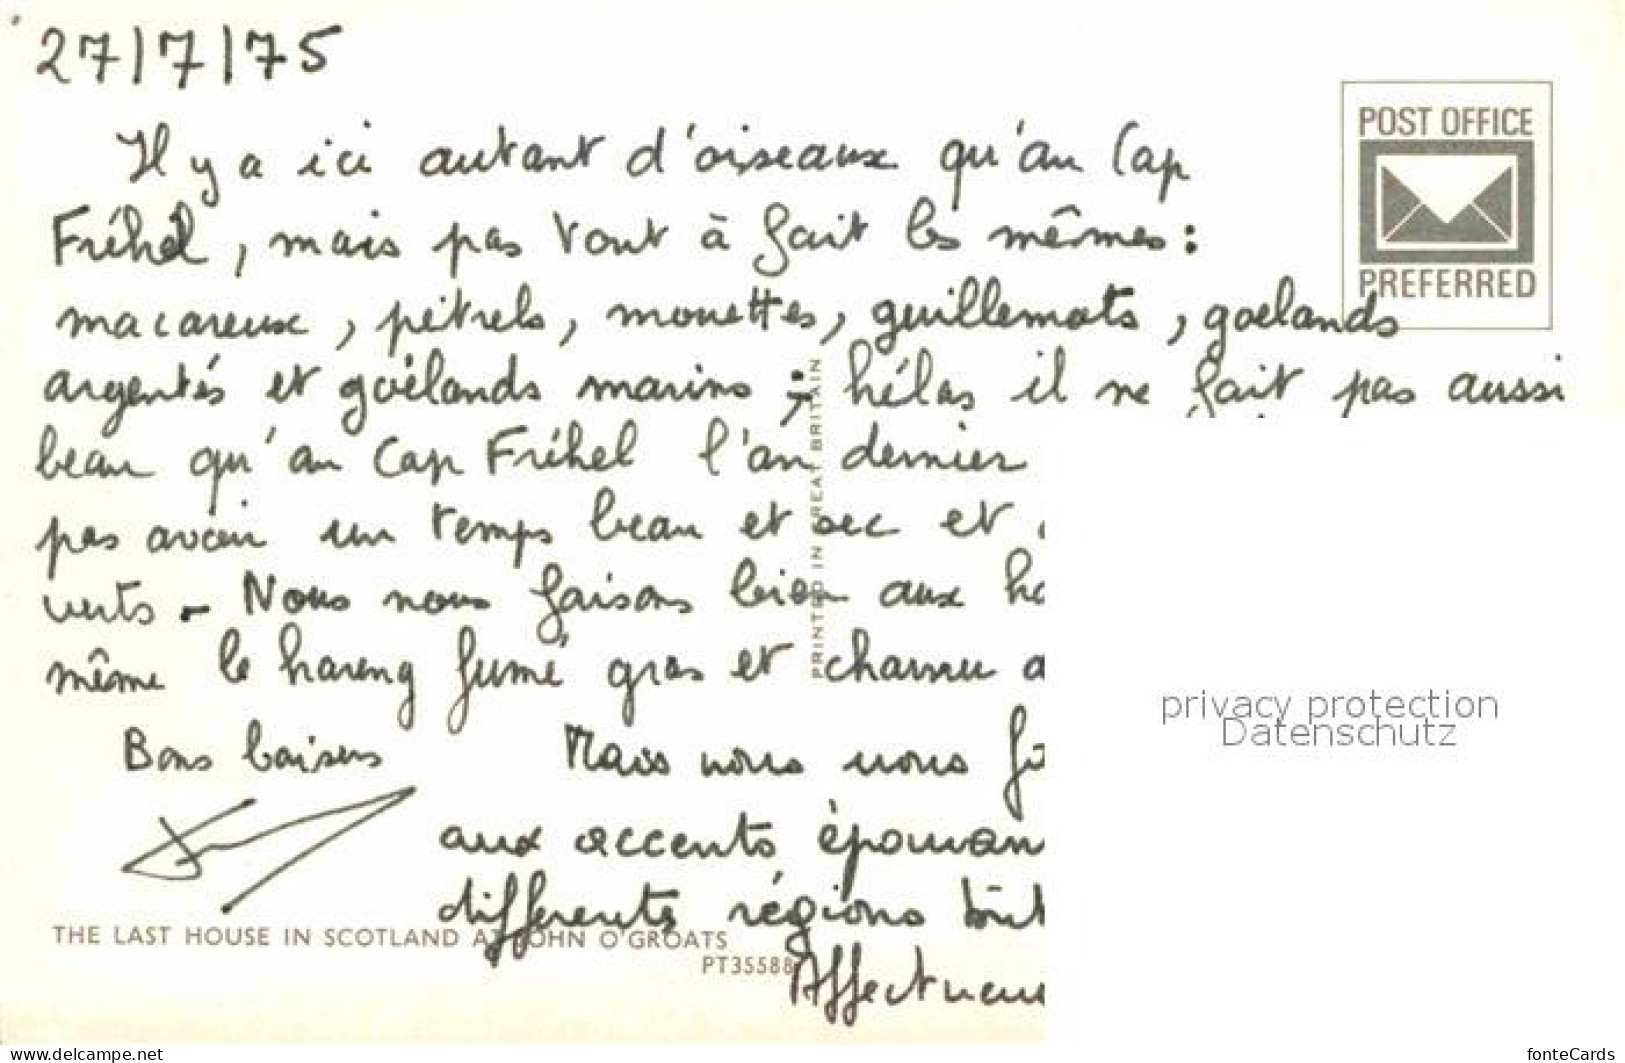 27/7/75
Il y a ici autant d'oiseaux qu'au Cap
Fréhel, mais pas tout à fait les mêmes :
macareux, pétrels, mouettes, guillemots, goélands
argentés et goélands marins ; hélas il ne fait pas aussi
beau qu'au Cap Fréhel l'an dernier
pas avoir un temps beau et sec et
verts - Nous nous faisons bien aux
même le hareng fumé gras et charnu
Bons baisers
Mais nous nous
aux accents
différents régions
POST OFFICE
PREFERRED
PRINTED IN GREAT BRITAIN
THE LAST HOUSE IN SCOTLAND AT JOHN O'GROATS
PT35588
privacy protection
Datenschutz
www.delcampe.net
fonteCards